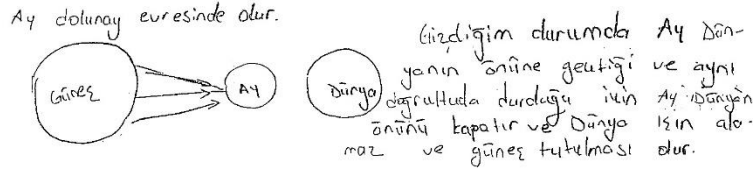 Ay dolunay evresinde olur.
Güneş
Ay
Dünya
Çizdiğim durumda Ay Dün-
yanın önüne geçtiği ve aynı
doğrultuda durduğu için Ay Dünyan
önünü kapatır ve Dünya ışın ala-
maz ve güneş tutulması olur.